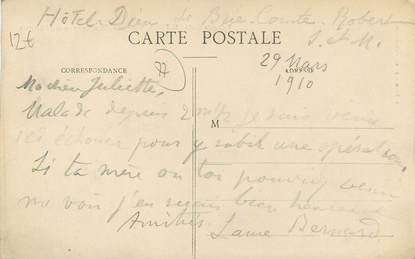 Hôtel-Dieu de Brie Comte Robert
S. et M.
12€
CARTE POSTALE
77
29 Mars
1910
CORRESPONDANCE
ADRESSE
Ma chère Juliette,
Malade depuis 2 je suis venue
M
échouer pour y subir une opération.
Si ta mère ou toi pouviez venir
me voir j'en serais bien heureuse
Amitiés
Bernard